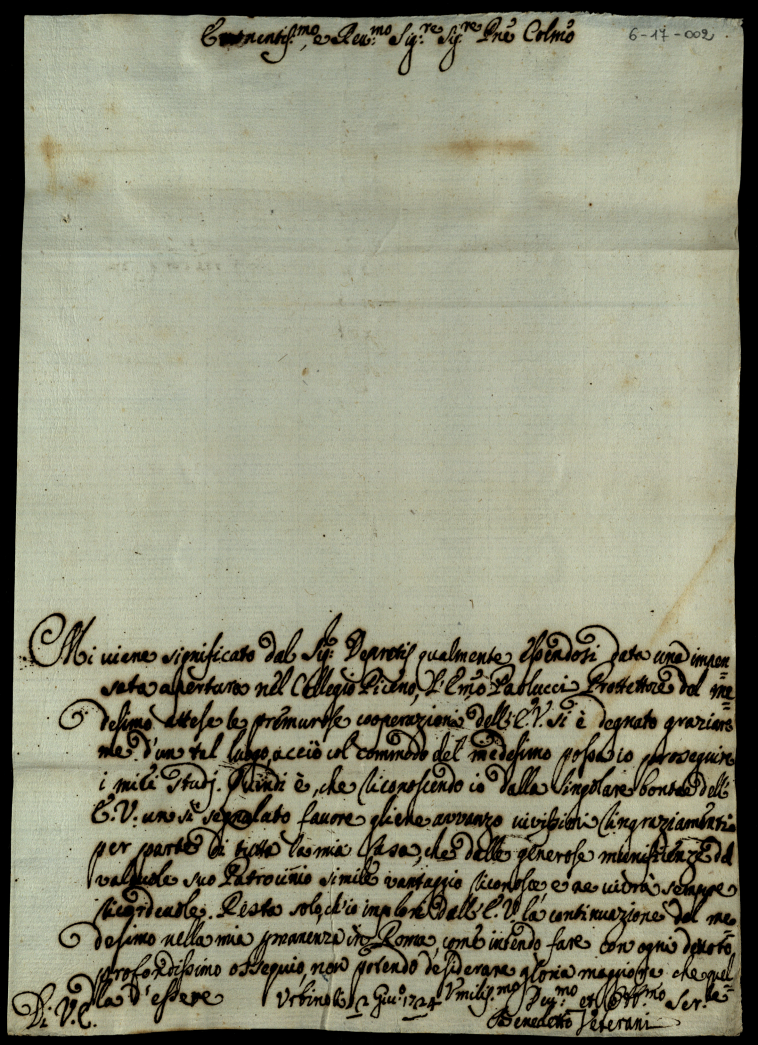 Eminentiss.mo, e Reu.mo Sig.re Sig.re Pñe Colmo
6-17-002
Mi uiene significato dal Sig.r Depretis qualmente essendosi data una impen
sata apertura nel Collegio Piceno, l'Emo Paolucci Prottettore del me
desimo attese le premurose cooperazioni dell'E.V. si è degnato graziar
me d'un tal luogo, acciò col commodo del medesimo possa io proseguire
i miei studj. Quindi è, che riconoscendo io dalla singolare bontà dell'
E.V. un sì segnalato fauore gliene auuanzo uiuissimi ringraziamenti
per parte di tutta la mia Casa, che dalle generose munificenze del
valeuole suo Patrocinio simile vantaggio riconosce e ne uiurà sempre
ricordeuole. Resta solo, ch'io implori dall'E.V. la continuazione del me
desimo nella mia permanenza in Roma, come intendo fare con ogni deuoto,
profondissimo ossequio, non potendo desiderare gloria maggiore che quel
la d'essere
Urbino li 12 Giu.o 1724
Di V.E.
Vmiliss.mo Deu.mo et Obb.mo Ser.re
Benedetto Veterani